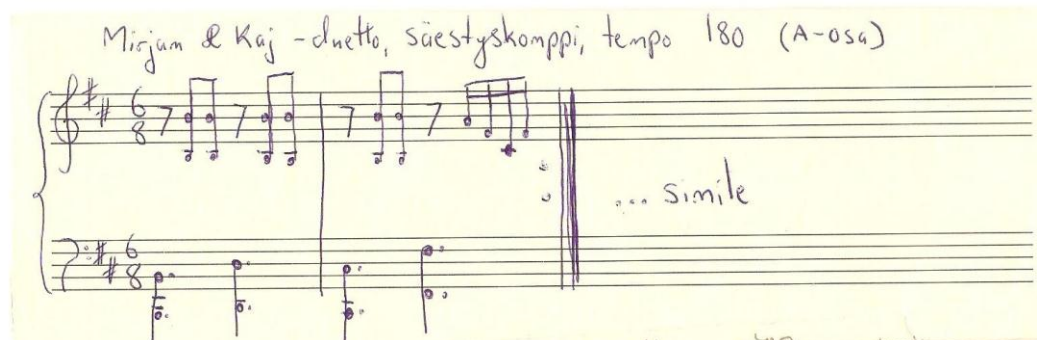 Mirjam & Kaj -duetto, säestyskomppi, tempo 180 (A-osa)
6
8
... simile
6
8